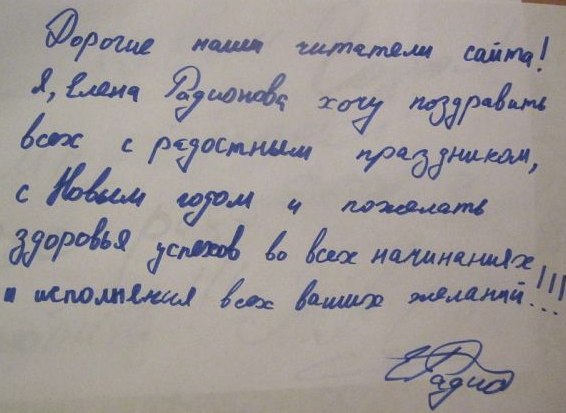 Дорогие наши читатели сайта!
Я, Елена Радионова хочу поздравить
всех с радостным праздником,
с Новым годом и пожелать
здоровья успехов во всех начинаниях
и исполнения всех ваших желаний...!!!
ЕРадио